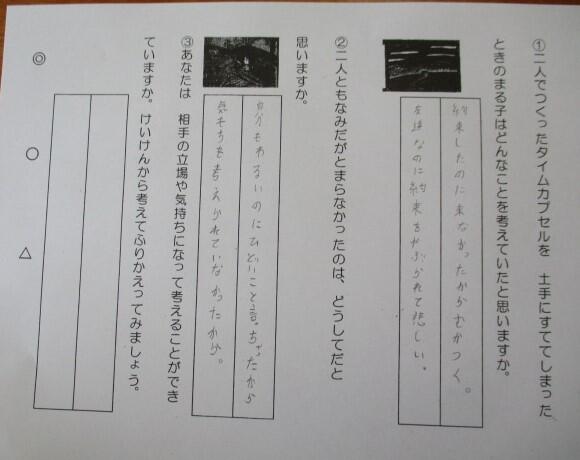 ①二人でつくったタイムカプセルを 土手にすててしまった
ときのまる子はどんなことを考えていたと思いますか。
約束したのに来なかったからむかつく。
友達なのに約束をやぶられて悲しい。
②二人ともなみだがとまらなかったのは、どうしてだと
思いますか。
自分もわるいのにひどいこと言っちゃったから
気もちを考えられていなかったから。
③あなたは 相手の立場や気持ちになって考えることができ
ていますか。けいけんから考えてふりかえってみましょう。
◎ ○ △